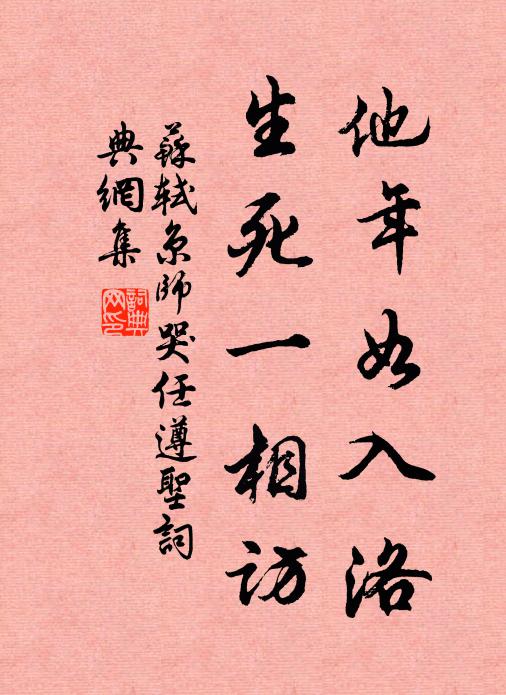 他年如入洛
生死一相訪
蘇軾京師哭任遵聖詞
典網集
詞典
网印